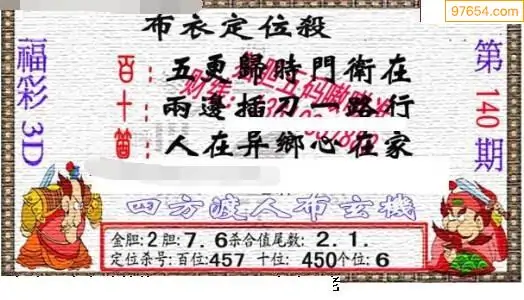 97654.com
布衣定位殺
福彩3D
第140期
百:五更歸時門衛在
十:兩邊插刀一路行
個:人在异鄉心在家
四方渡人布玄機
金胆:2胆:7.6杀合值尾数:2.1.
定位杀号:百位:457 十位:450个位:6